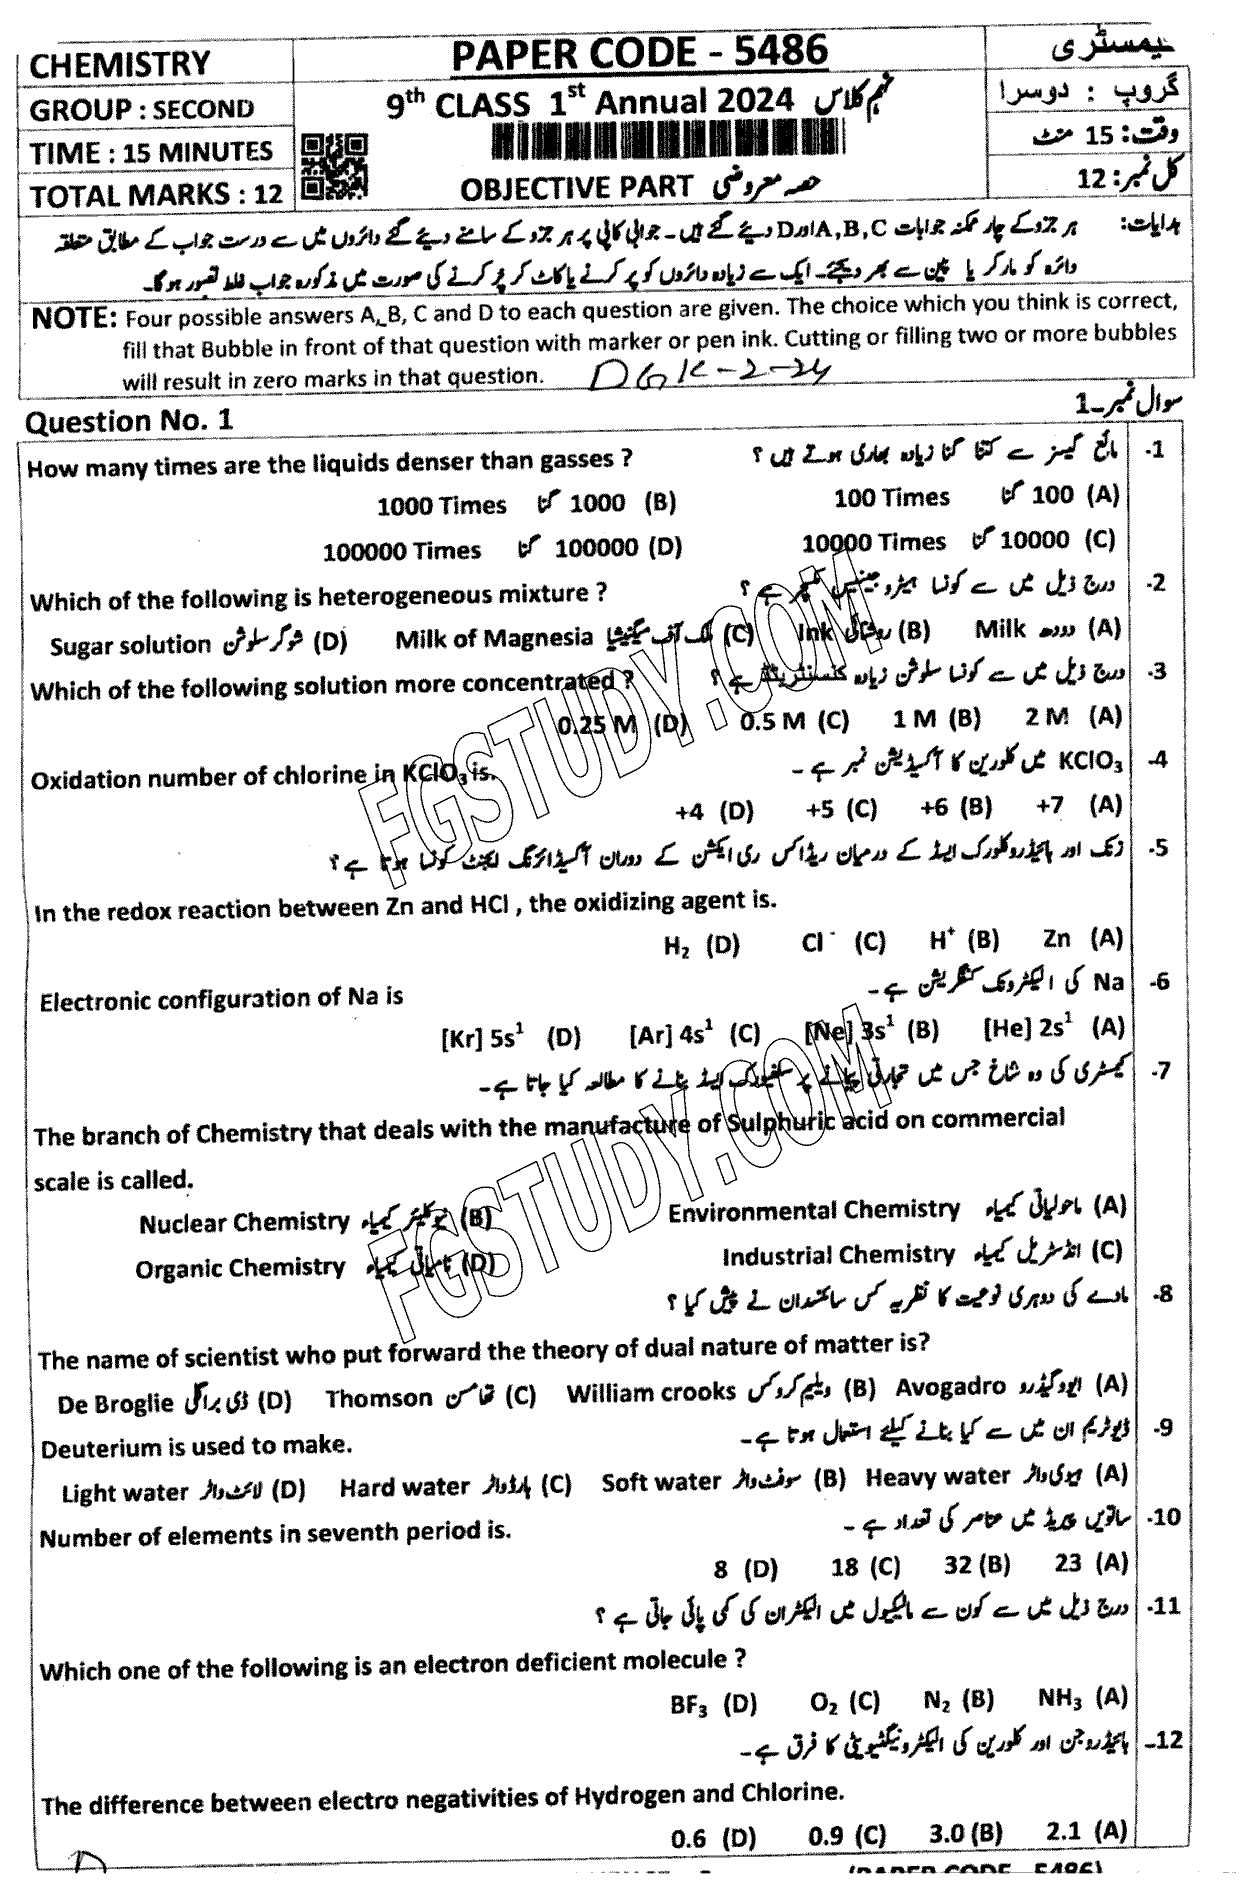 CHEMISTRY
PAPER CODE - 5486
کیمسٹری
GROUP : SECOND
9th CLASS 1st Annual 2024 نہم کلاس
گروپ : دوسرا
TIME : 15 MINUTES
وقت: 15 منٹ
TOTAL MARKS : 12
OBJECTIVE PART حصہ معروضی
کل نمبر: 12
ہدایات: ہر جزو کے چار ممکنہ جوابات A,B,C اور D دیئے گئے ہیں۔ جوابی کاپی پر ہر جزو کے سامنے دیئے گئے دائروں میں سے درست جواب کے مطابق متعلقہ
دائرہ کو مارکر یا پین سے بھر دیجئے۔ ایک سے زیادہ دائروں کو پر کرنے یا کاٹ کر پُر کرنے کی صورت میں مذکورہ جواب غلط تصور ہوگا۔
NOTE: Four possible answers A, B, C and D to each question are given. The choice which you think is correct,
fill that Bubble in front of that question with marker or pen ink. Cutting or filling two or more bubbles
will result in zero marks in that question. DGK-2-24
Question No. 1 سوال نمبر۔1
How many times are the liquids denser than gasses ? مائع گیسز سے کتنا گنا زیادہ بھاری ہوتے ہیں؟ -1
1000 Times گنا 1000 (B) 100 Times گنا 100 (A)
100000 Times گنا 100000 (D) 10000 Times گنا 10000 (C)
Which of the following is heterogeneous mixture ? درج ذیل میں سے کونسا ہیٹروجینیس مکسچر ہے؟ -2
Sugar solution شوگر سلوشن (D) Milk of Magnesia ملک آف میگنیشیا (C) Ink روشنائی (B) Milk دودھ (A)
Which of the following solution more concentrated ? درج ذیل میں سے کونسا سلوشن زیادہ کنسنٹریٹڈ ہے؟ -3
0.25 M (D) 0.5 M (C) 1 M (B) 2 M (A)
Oxidation number of chlorine in KClO₃ is. KClO₃ میں کلورین کا آکسیڈیشن نمبر ہے۔ -4
+4 (D) +5 (C) +6 (B) +7 (A)
زنک اور ہائیڈروکلورک ایسڈ کے درمیان ریڈاکس ری ایکشن کے دوران آکسیڈائزنگ ایجنٹ کونسا ہوتا ہے؟ -5
In the redox reaction between Zn and HCl , the oxidizing agent is.
H₂ (D) Cl⁻ (C) H⁺ (B) Zn (A)
Electronic configuration of Na is Na کی الیکٹرونک کنفگریشن ہے۔ -6
[Kr] 5s¹ (D) [Ar] 4s¹ (C) [Ne] 3s¹ (B) [He] 2s¹ (A)
کیمسٹری کی وہ شاخ جس میں تجارتی پیمانے پر سلفیورک ایسڈ بنانے کا مطالعہ کیا جاتا ہے۔ -7
The branch of Chemistry that deals with the manufacture of Sulphuric acid on commercial
scale is called.
Nuclear Chemistry نیوکلیئر کیمیاء (B) Environmental Chemistry ماحولیاتی کیمیاء (A)
Organic Chemistry نامیاتی کیمیاء (D) Industrial Chemistry انڈسٹریل کیمیاء (C)
مادے کی دوہری نوعیت کا نظریہ کس سائنسدان نے پیش کیا؟ -8
The name of scientist who put forward the theory of dual nature of matter is?
De Broglie ڈی براگلی (D) Thomson تھامسن (C) William crooks ولیم کروکس (B) Avogadro ایووگیڈرو (A)
Deuterium is used to make. ڈیوٹریم ان میں سے کیا بنانے کیلئے استعمال ہوتا ہے۔ -9
Light water لائٹ واٹر (D) Hard water ہارڈ واٹر (C) Soft water سوفٹ واٹر (B) Heavy water ہیوی واٹر (A)
Number of elements in seventh period is. ساتویں پیریڈ میں عناصر کی تعداد ہے۔ -10
8 (D) 18 (C) 32 (B) 23 (A)
درج ذیل میں سے کون سے مالیکیول میں الیکٹران کی کمی پائی جاتی ہے؟ -11
Which one of the following is an electron deficient molecule ?
BF₃ (D) O₂ (C) N₂ (B) NH₃ (A)
ہائیڈروجن اور کلورین کی الیکٹرونیگٹیویٹی کا فرق ہے۔ -12
The difference between electro negativities of Hydrogen and Chlorine.
0.6 (D) 0.9 (C) 3.0 (B) 2.1 (A)
(PAPER CODE - 5486)
FGSTUDY.COM
FGSTUDY.COM